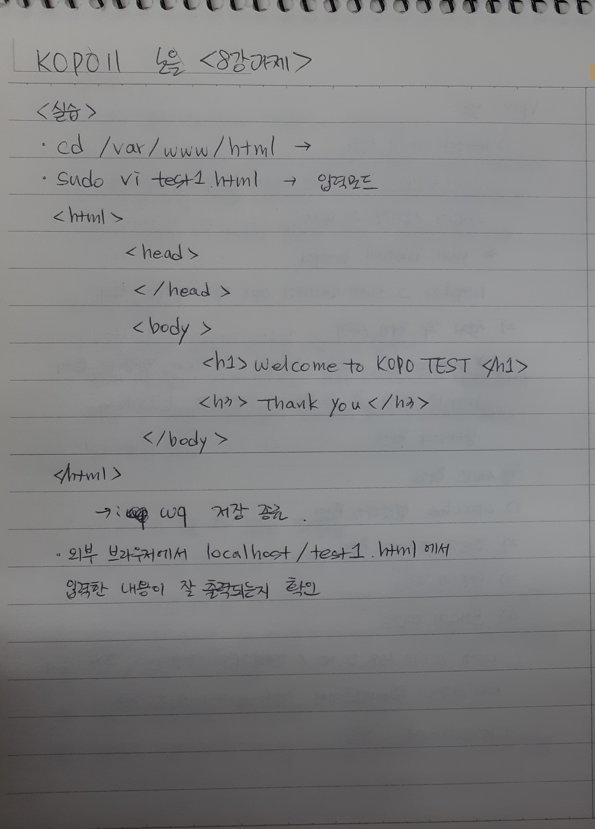 KOPO11 노을 <8강과제>
<실습>
· cd /var/www/html →
· sudo vi test1.html → 입력모드
<html>
<head>
</head>
<body>
<h1> Welcome to KOPO TEST </h1>
<h3> Thank you </h3>
</body>
</html>
→ : wq 저장 종료.
· 외부 브라우저에서 localhost/test1.html 에서
입력한 내용이 잘 출력되는지 확인